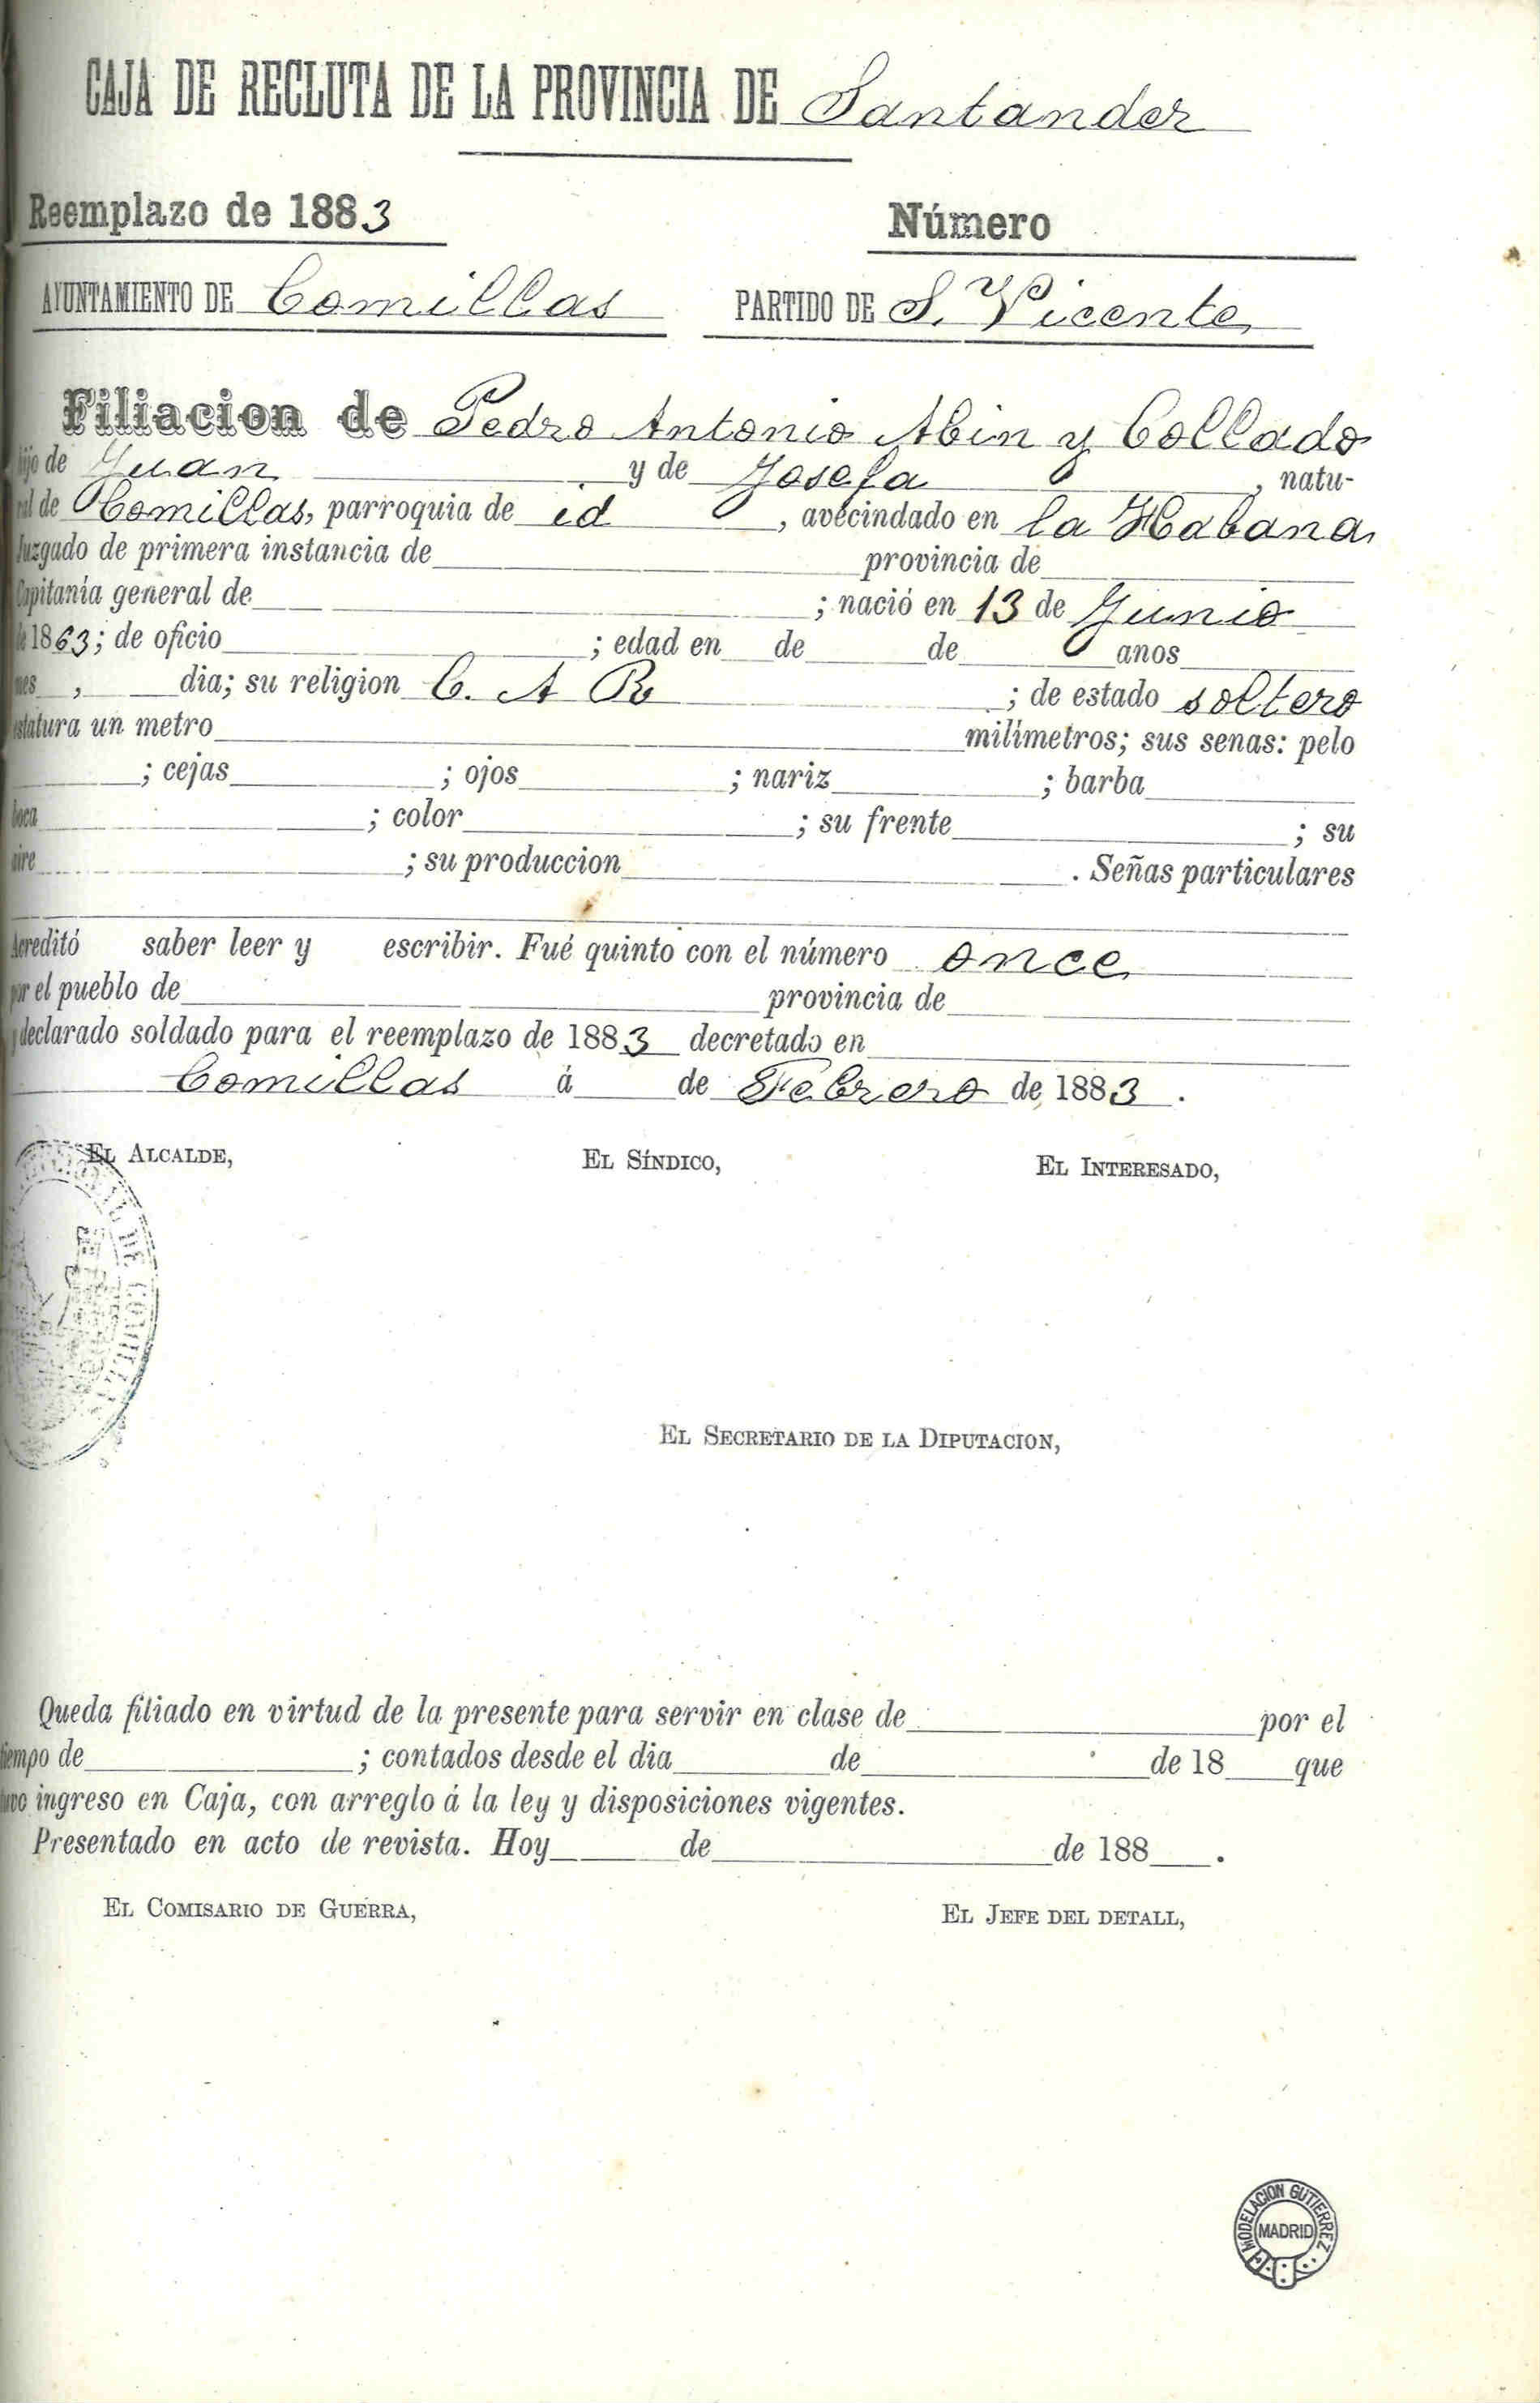 CAJA DE RECLUTA DE LA PROVINCIA DE Santander
Reemplazo de 1883 Número
AYUNTAMIENTO DE Comillas PARTIDO DE S. Vicente
Filiacion de Pedro Antonio Abin y Collado
hijo de Juan y de Josefa, natu-
ral de Comillas, parroquia de id, avecindado en la Habana,
Juzgado de primera instancia de provincia de
Capitanía general de ; nació en 13 de Junio
de 1863; de oficio ; edad en de de anos
mes , dia; su religion C. A R ; de estado soltero
estatura un metro milímetros; sus senas: pelo
; cejas ; ojos ; nariz ; barba
boca ; color ; su frente ; su
aire ; su produccion . Señas particulares
Acreditó saber leer y escribir. Fué quinto con el número once
por el pueblo de provincia de
y declarado soldado para el reemplazo de 1883 decretado en
Comillas á de Febrero de 1883.
EL ALCALDE, EL SÍNDICO, EL INTERESADO,
EL SECRETARIO DE LA DIPUTACION,
Queda filiado en virtud de la presente para servir en clase de por el
tiempo de ; contados desde el dia de de 18 que
tuvo ingreso en Caja, con arreglo á la ley y disposiciones vigentes.
Presentado en acto de revista. Hoy de de 188 .
EL COMISARIO DE GUERRA, EL JEFE DEL DETALL,
MODELACION GUTIERREZ
MADRID